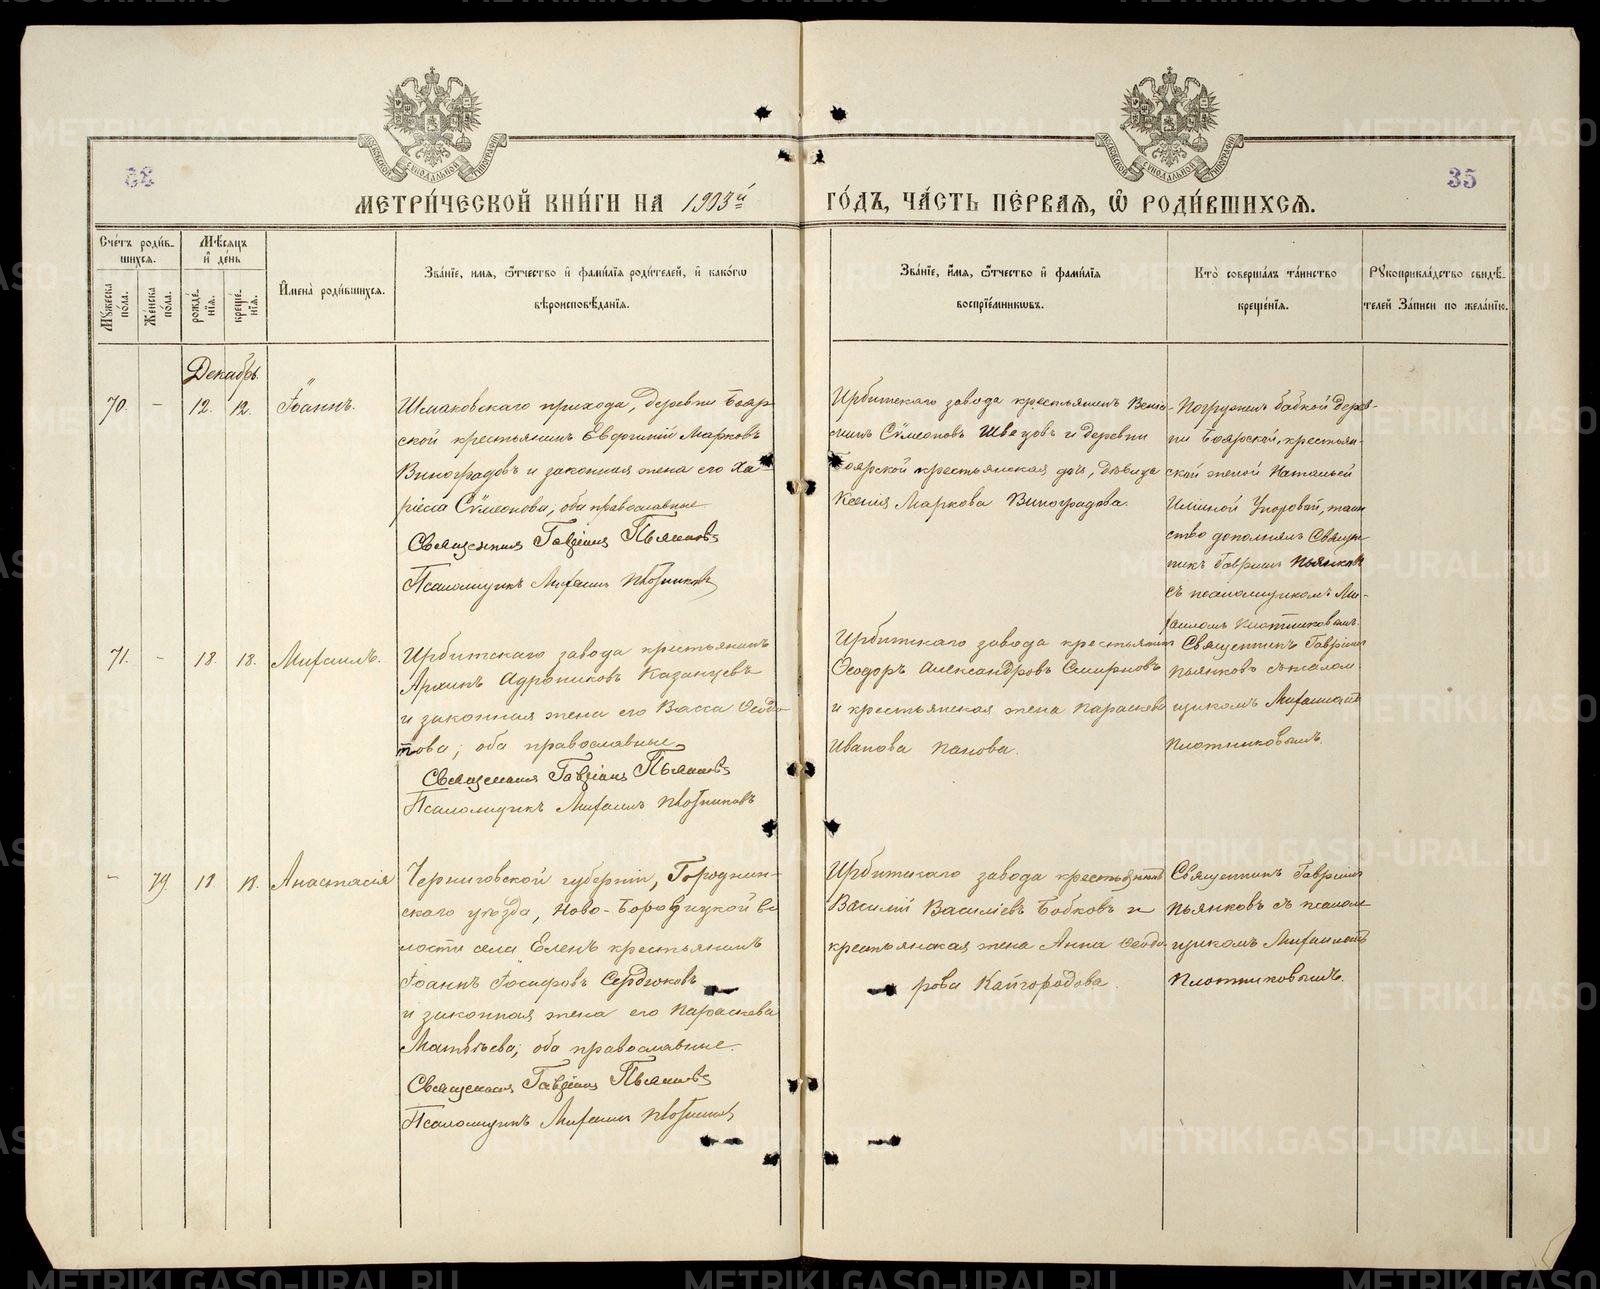 МОСКОВСКОЙ СѴНОДАЛЬНОЙ ТИПОГРАФІИ
МОСКОВСКОЙ СѴНОДАЛЬНОЙ ТИПОГРАФІИ
35
МЕТРИ́ЧЕСКОЙ КНИ́ГИ НА 1903й ГО́ДЪ, ЧА́СТЬ ПЕ́РВАЯ, Ѽ РОДИ́ВШИХСЯ.
Сче́тъ роди́в-
шихся.
Мꙋжеска по́ла.
Же́нска по́ла.
Мѣ́сяцъ
и́ де́нь
рожде́-
нїя.
креще́-
нїя.
И҆мена̀ роди́вшихся.
Зва́нїе, и҆мя, ѻ҆́тчество и҆ фами́лїя роди́телей, и҆ како́гѡ
вѣроисповѣ́данїя.
Зва́нїе, и҆́мя, ѻ҆́тчество и҆ фами́лїя
воспрїе́мниковъ.
Кто̀ соверша́лъ та́инство
креще́нїя.
Рꙋкоприкла́дство свидѣ́-
телей За́писи по жела́нїю.
Декабрь.
70.
–
12.
12.
Іоаннъ.
Шмаковскаго прихода, деревни Бояр-
ской крестьянинъ Евфогиній Марковъ
Виноградовъ и законная жена его Ха-
ріеса Сѵмеонова, оба православные
Священникъ Гавріилъ Пьянковъ
Псаломщикъ Михаилъ Плотниковъ
Ирбитскаго завода крестьянинъ Веніа-
минъ Сѵмеоновъ Швецовъ и деревни
Боярской крестьянская дочь, дѣвица
Ксенія Маркова Виноградова.
Погруженъ бабкой дерев-
ни Боярской, крестьян-
ской женой Натальей
Илиной Упоровой, таин
ство дополнялъ Священ
никъ Гавріилъ Пьянковъ
съ псаломщикомъ Ми-
хаиломъ Плотниковымъ.
71.
–
18.
18.
Михаилъ.
Ирбитскаго завода крестьянинъ
Архипъ Адрониковъ Казанцевъ
и законная жена его Васса Ѳеодо-
това, оба православные
Священникъ Гавріилъ Пьянковъ
Псаломщикъ Михаилъ Плотниковъ
Ирбитскаго завода крестьянинъ
Ѳеодоръ Александровъ Смирновъ
и крестьянская жена Параскева
Иванова Панова.
Священникъ Гавріилъ
Пьянковъ съ псалом
щикомъ Михаиломъ
Плотниковымъ.
–
79
18.
18.
Анастасія
Черниговской губерніи, Городнин-
скаго уѣзда, Ново-Боровицкой во
лости села Еленъ крестьянинъ
Іоаннъ Іосифовъ Сердюковъ
и законная жена его Параскева
Матвѣева, оба православные.
Священникъ Гавріилъ Пьянковъ
Псаломщикъ Михаилъ Плотниковъ
Ирбитскаго завода крестьянинъ
Василій Василіевъ Бобковъ и
крестьянская жена Анна Ѳеодо
рова Кайгородова.
Священникъ Гавріилъ
Пьянковъ съ псалом
щикомъ Михаиломъ
Плотниковымъ.
METRIKI.GASO-URAL.RU